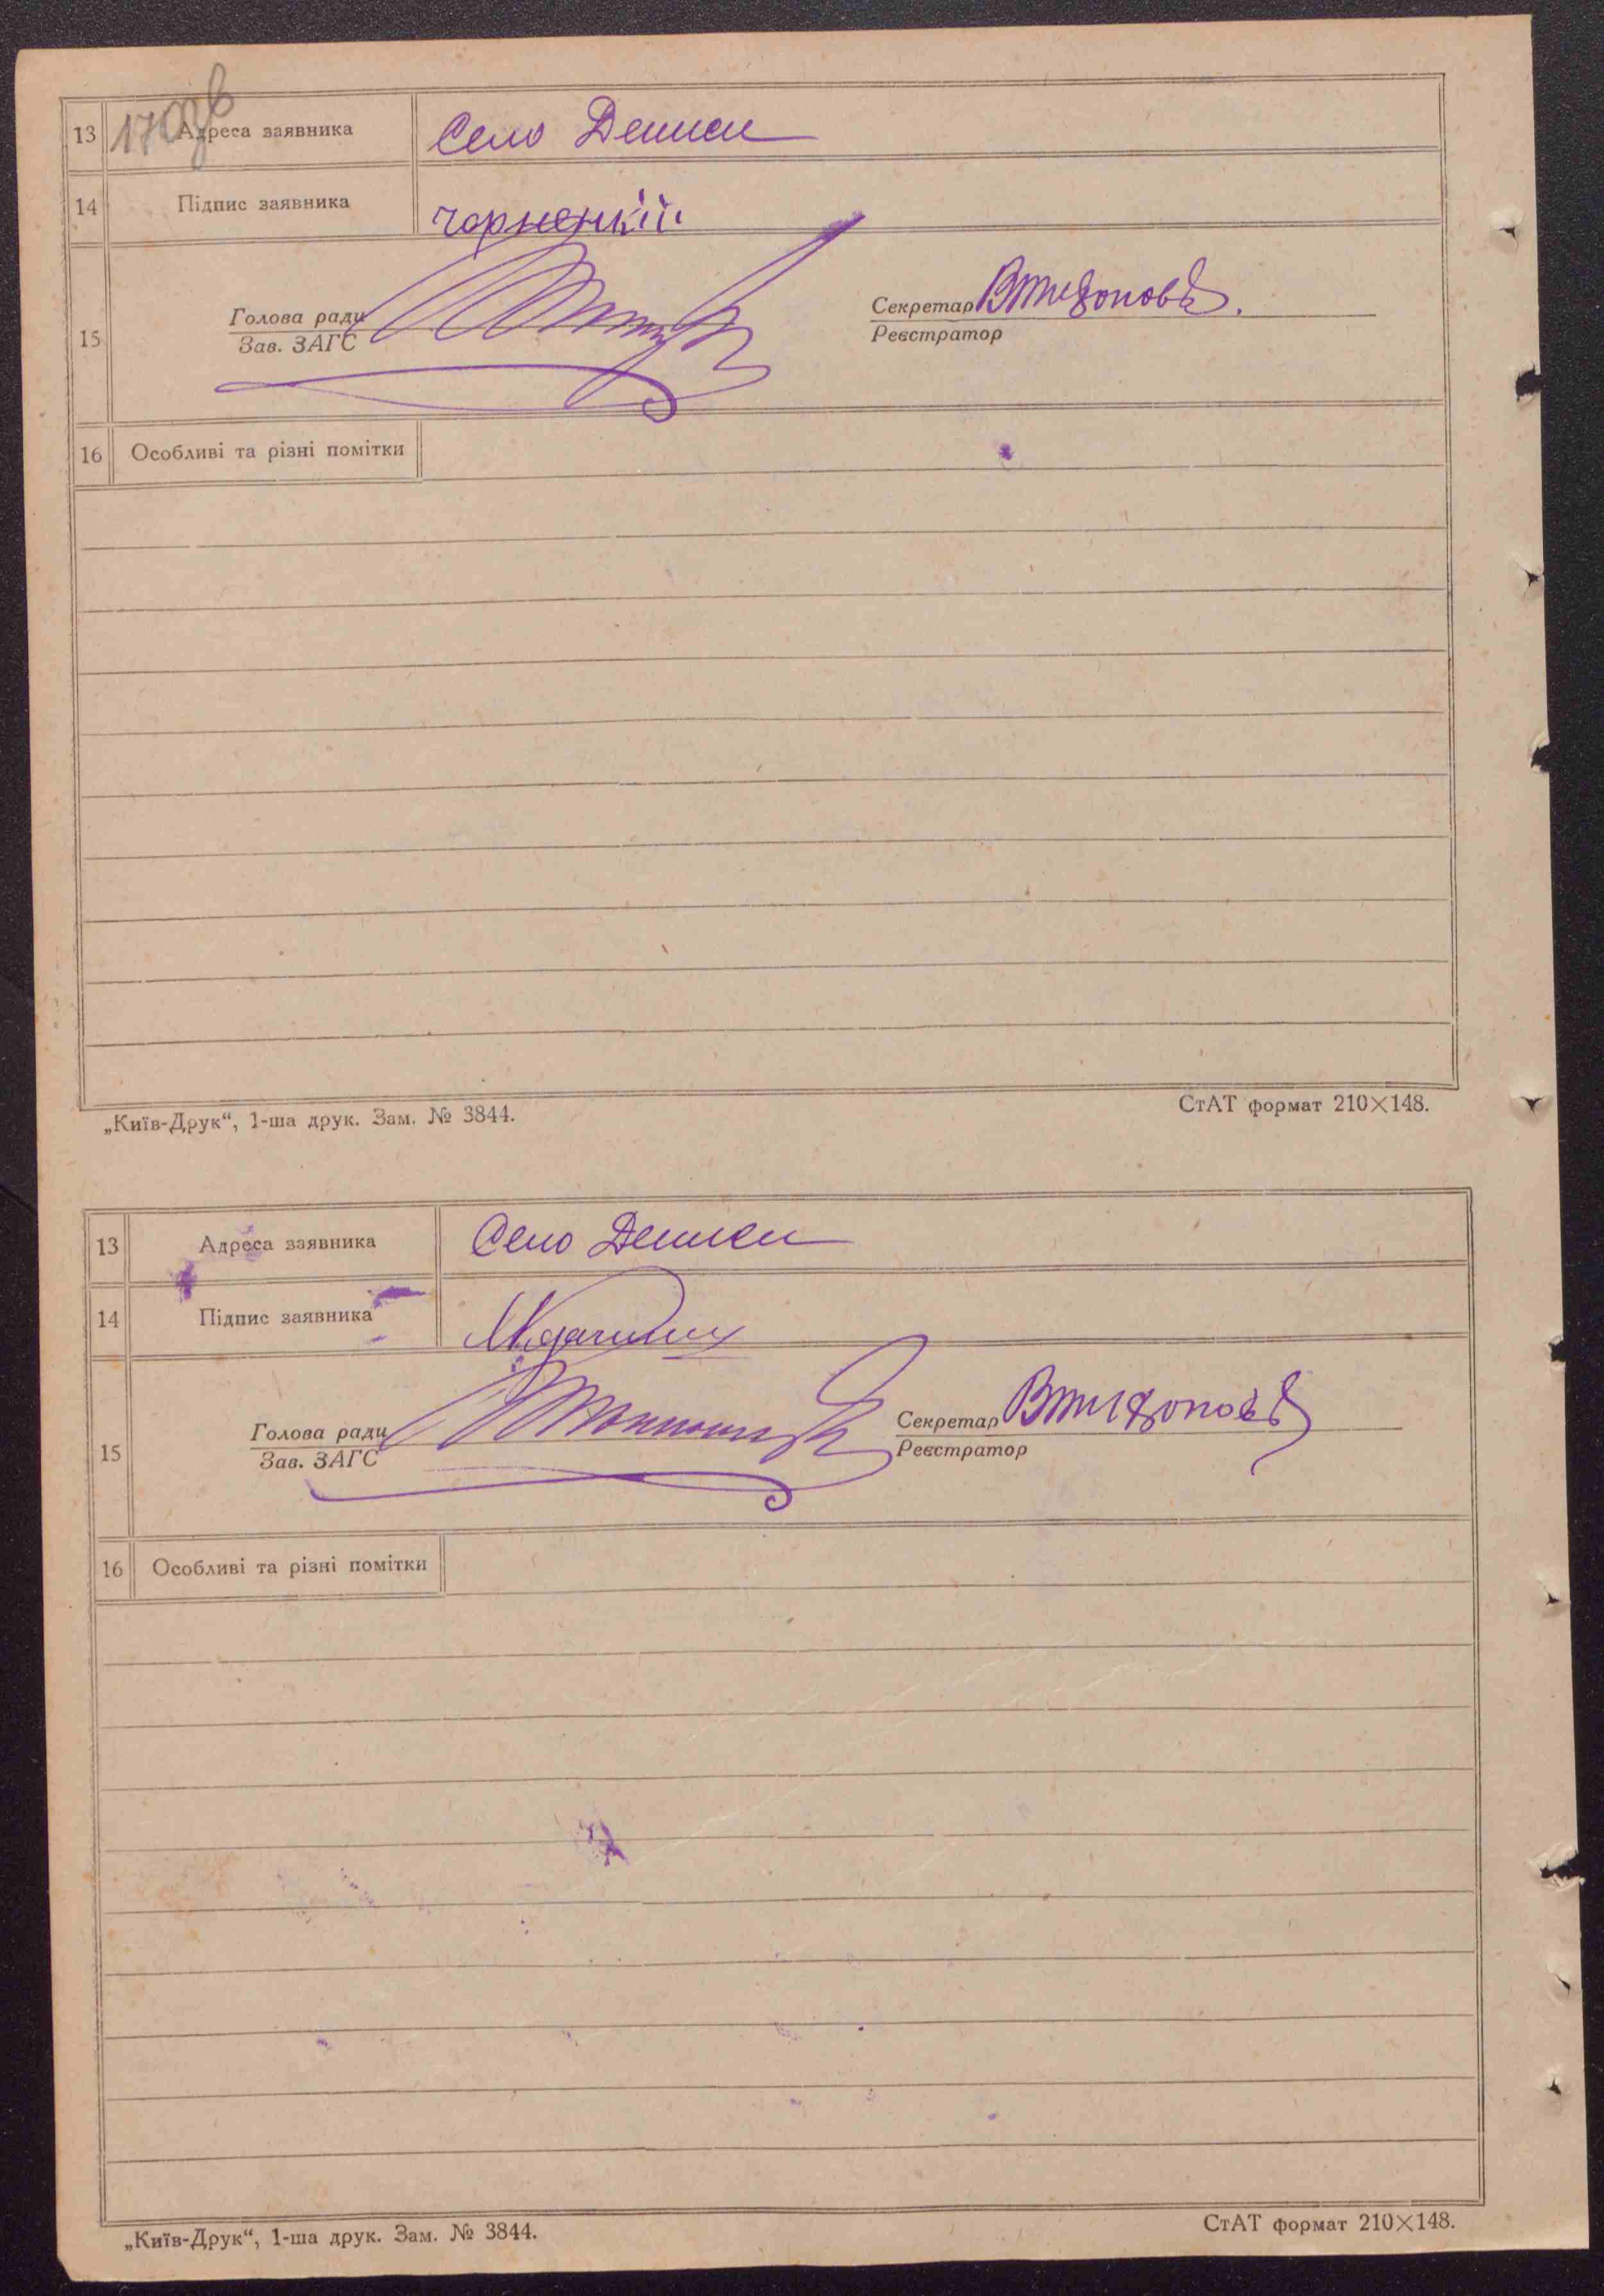 170зв
13 Адреса заявника Село Дениси
14 Підпис заявника Чорненкій
Голова ради Секретар
15 Зав. ЗАГС Реєстратор
16 Особливі та різні помітки
„Київ-Друк“, 1-ша друк. Зам. № 3844. СтАТ формат 210×148.
13 Адреса заявника Село Дениси
14 Підпис заявника
Голова ради Секретар
15 Зав. ЗАГС Реєстратор
16 Особливі та різні помітки
„Київ-Друк“, 1-ша друк. Зам. № 3844. СтАТ формат 210×148.